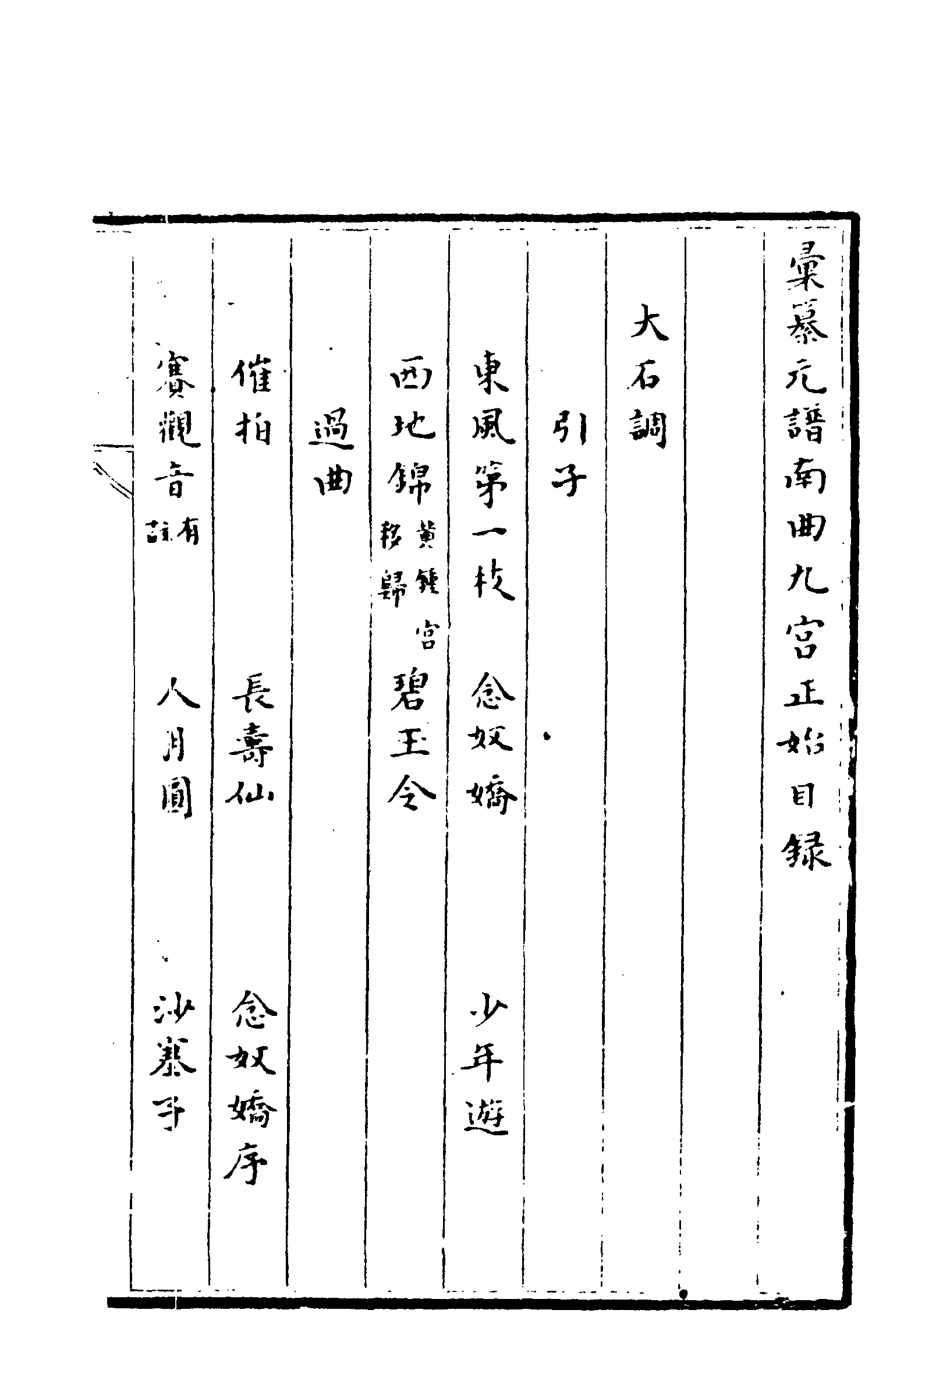 彙纂元譜南曲九宮正始目録
大石調
引子
東風第一枝　念奴嬌　少年遊
西地錦 黃鍾宮移歸　碧玉令
過曲
催拍　長壽仙　念奴嬌序
賽觀音 有註　人月圓　沙塞子